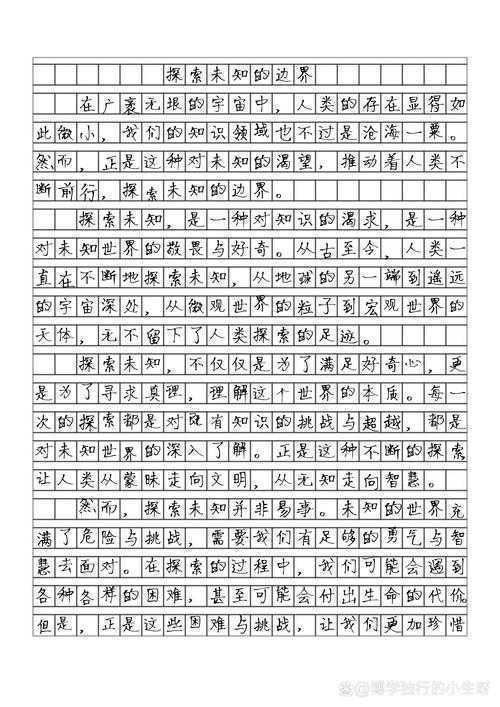 探索未知的边界
在广袤无垠的宇宙中，人类的存在显得如
此微小，我们的知识领域也不过是沧海一粟。
然而，正是这种对未知的渴望，推动着人类不
断前行，探索未知的边界。
探索未知，是一种对知识的渴求，是一种
对未知世界的敬畏与好奇。从古至今，人类一
直在不断地探索未知，从地球的另一端到遥远
的宇宙深处，从微观世界的粒子到宏观世界的
天体，无不留下了人类探索的足迹。
探索未知，不仅仅是为了满足好奇心，更
是为了寻求真理，理解这个世界的本质。每一
次的探索都是对既有知识的挑战与超越，都是
对未知世界的深入了解。正是这种不断的探索
让人类从蒙昧走向文明，从无知走向智慧。
然而，探索未知并非易事。未知的世界充
满了危险与挑战，需要我们有足够的勇气与智
慧去面对。在探索的过程中，我们可能会遇到
各种各样的困难，甚至可能会付出生命的代价。
但是，正是这些困难与挑战，让我们更加珍惜
@博学独行的小生呀